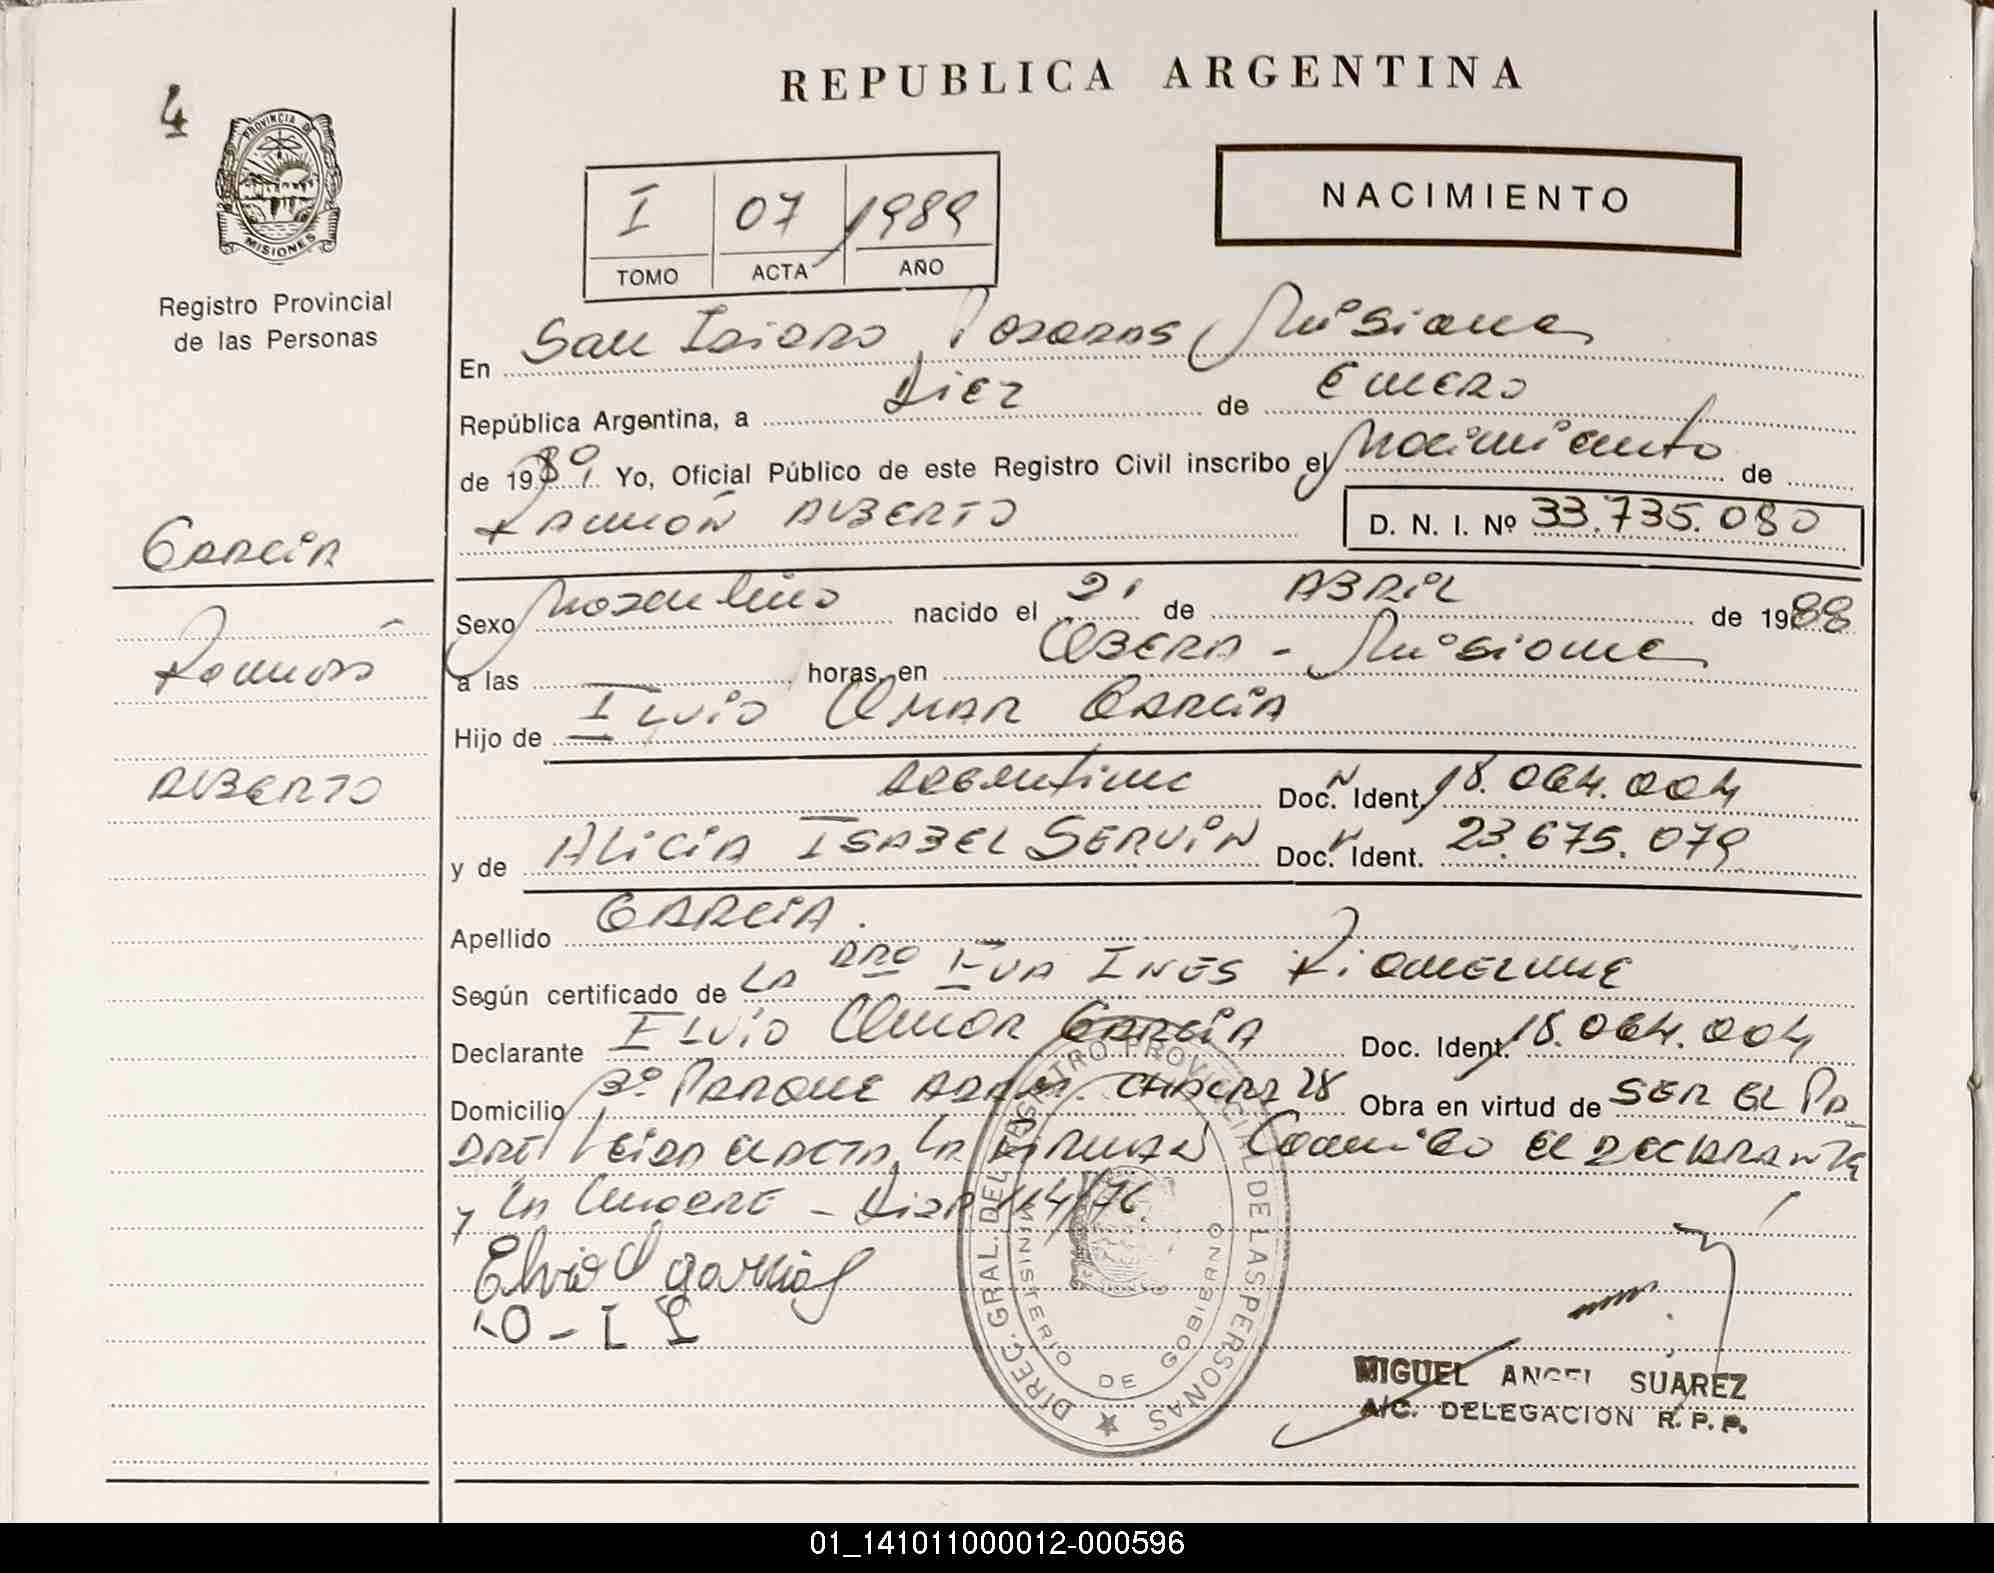 REPUBLICA ARGENTINA
4
PROVINCIA DE
MISIONES
Registro Provincial
de las Personas
NACIMIENTO
I 07 1989
TOMO ACTA AÑO
En San Isidro Posadas Misiones
República Argentina, a Diez de Enero
de 1989 Yo, Oficial Público de este Registro Civil inscribo el Nacimiento de
Ramón Alberto
D. N. I. Nº 33.735.080
García
Ramón
Alberto
Sexo Masculino nacido el 21 de Abril de 1988
a las horas, en Oberá - Misiones
Hijo de Elvio Omar García
Argentino Doc. Ident. 18.064.004
y de Alicia Isabel Servin Doc. Ident. 23.675.079
Apellido García.
Según certificado de La Dra Eva Ines
Declarante Elvio Omar García Doc. Ident. 18.064.004
Domicilio 3º Parque Adam. Chacra 28 Obra en virtud de ser el Pa
dre Leida el acta, la firman Conmigo el declarante
y la Madre
Elvio O garcia
MIGUEL ANGEL SUAREZ
A/C. DELEGACION R. P. P.
DIREC. GRAL. DEL REGISTRO PROVINCIAL DE LAS PERSONAS
MINISTERIO DE GOBIERNO
01_141011000012-000596